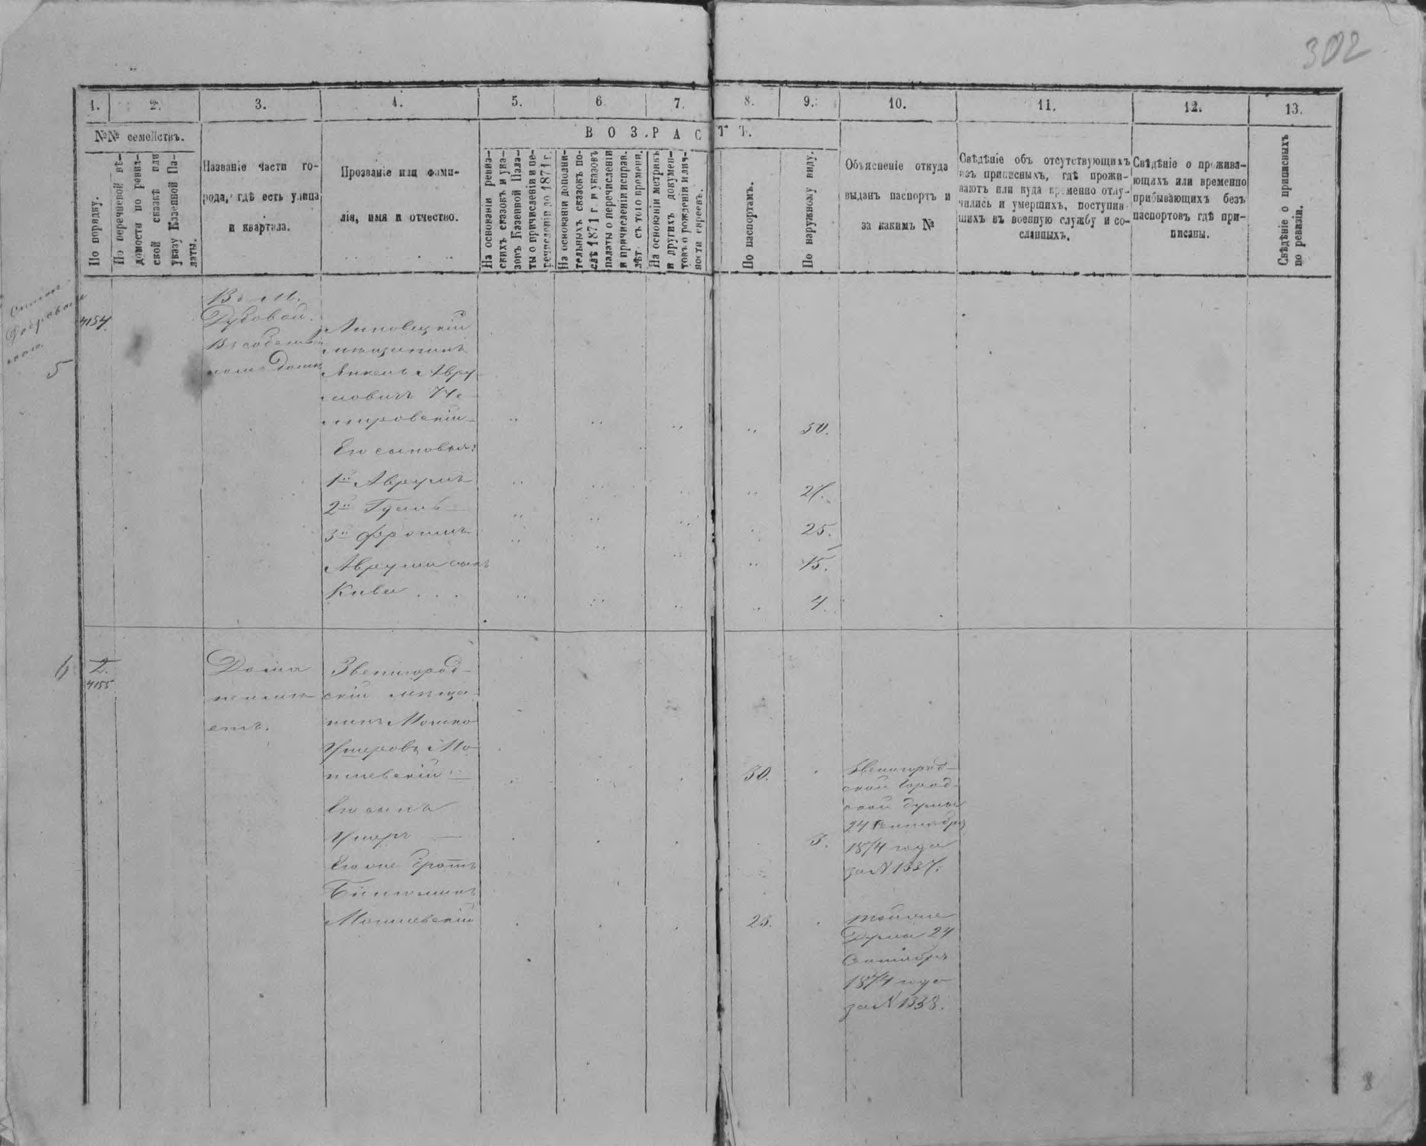 302
1.
2.
3.
4.
5.
6.
7.
8.
9.
10.
11.
12.
13.
№№ семействъ.
ВОЗРАСТЪ.
По порядку.
По перечневой вѣ-
домости по ревиз-
ской сказкѣ или
указу Казенной Па-
латы.
Названіе части го-
рода, гдѣ есть улица
и квартала.
Прозваніе или фами-
лія, имя и отчество.
На основаніи ревиз-
скихъ сказокъ и ука-
зовъ Казенной Пала-
ты о причисленіи и пе-
речисленіи до 1871 г.
На основаніи дополни-
тельныхъ сказокъ по-
слѣ 1871 г. и указовъ
палаты о перечисленіи
и причисленіи исправ.
лѣт. съ того времени.
На основаніи метрикъ
и другихъ докумен-
товъ о рожденіи и лич-
ности евреевъ.
По паспортамъ.
По наружному виду.
Объясненіе откуда
выданъ паспортъ и
за какимъ №
Свѣдѣніе объ отсутствующихъ
изъ приписныхъ, гдѣ прожи-
ваютъ или куда временно отлу-
чились и умершихъ, поступив-
шихъ въ военную службу и со-
сланныхъ.
Свѣдѣніе о прожива-
ющихъ или временно
прибывающихъ безъ
паспортовъ гдѣ при-
писаны.
Свѣдѣніе о приписныхъ
по ревизіи.
5
4154
Въ М.
Дубовой.
Въ собствен-
номъ домѣ
Липовецкій
мѣщанинъ
Янкель Авру-
мовичъ Не-
мировскій
50.
Его сыновья:
1й Аврумъ
27.
2й
25.
3й Фроимъ
15.
Аврума сынъ
Кива . . .
4.
6
2.
4155
Дома
не имѣ-
етъ.
Звенигород-
скій мѣща-
нинъ Мошко
Умеровъ Мо-
гилевскій
30.
Звенигород-
ской Город-
ской думы
24 Сентября
1874 года
за № 1337.
Его сынъ
Умеръ
5.
Его же братъ
Биниоминъ
Могилевскій
23.
той же
Думы 24
Сентября
1874 года
за № 1338.
8